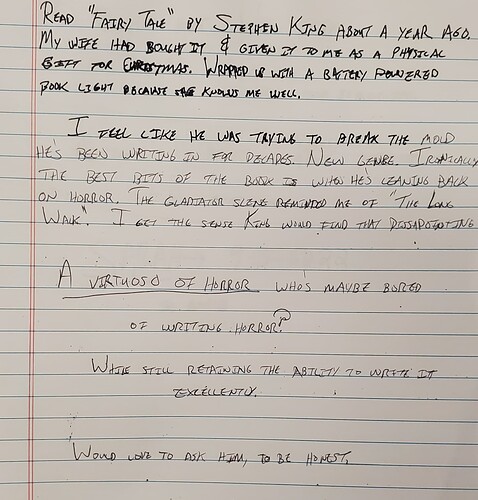 READ "FAIRY TALE" BY STEPHEN KING ABOUT A YEAR AGO.
MY WIFE HAD BOUGHT IT & GIVEN IT TO ME AS A PHYSICAL
GIFT FOR CHRISTMAS. WRAPPED UP WITH A BATTERY POWERED
BOOK LIGHT BECAUSE SHE KNOWS ME WELL.
I FEEL LIKE HE WAS TRYING TO BREAK THE MOLD
HE'S BEEN WRITING IN FOR DECADES. NEW GENRE. IRONICALLY
THE BEST BITS OF THE BOOK IS WHEN HE'S LEANING BACK
ON HORROR. THE GLADIATOR SCENE REMINDED ME OF "THE LONG
WALK". I GET THE SENSE KING WOULD FIND THAT DISSAPOINTING
A VIRTUOSO OF HORROR WHO'S MAYBE BORED
OF WRITING HORROR?
WHILE STILL RETAINING THE ABILITY TO WRITE IT
EXCELLENTLY.
WOULD LOVE TO ASK HIM, TO BE HONEST.